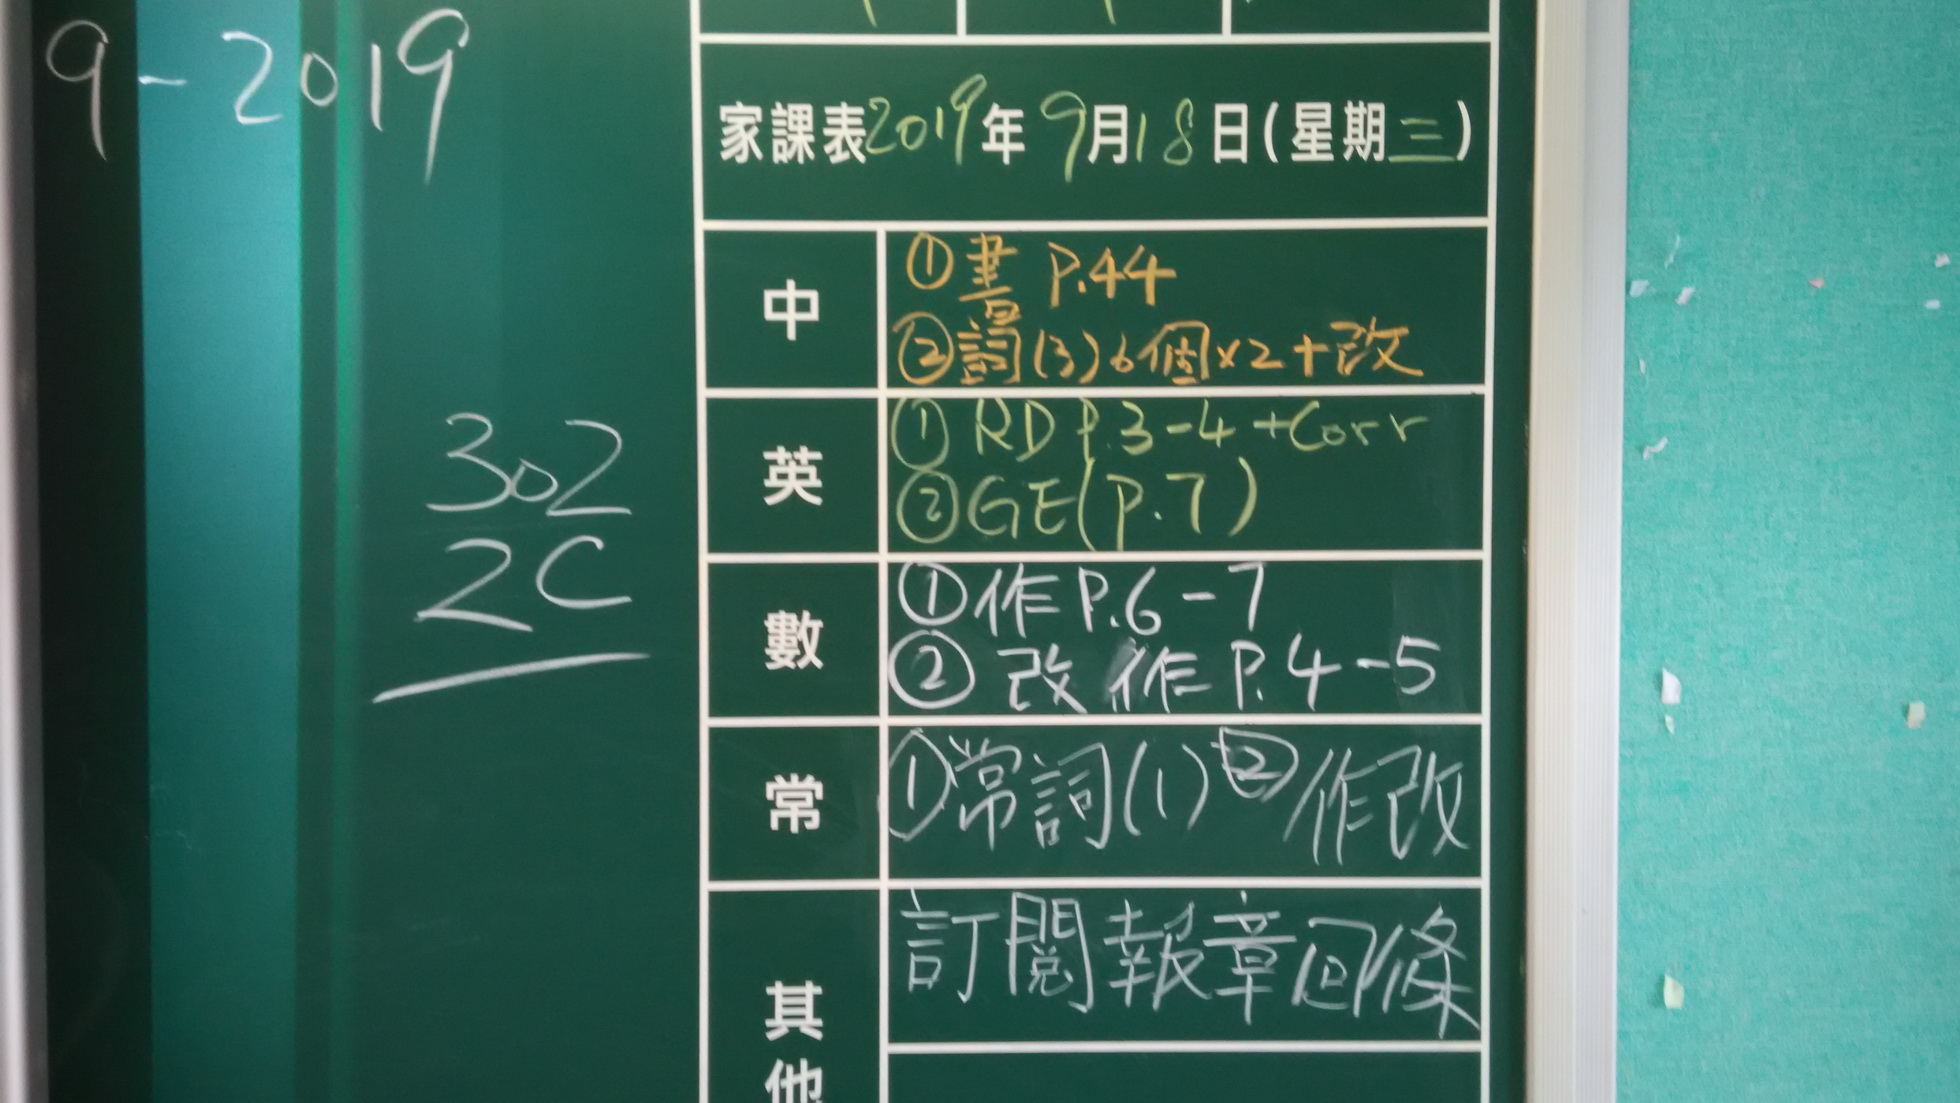 9-2019
302
2C
家課表2019年9月18日(星期三)
中
①書 P.44
②詞(3)6個x2+改
英
①RD P.3-4+Corr
②GE(P.7)
數
①作P.6-7
②改作P.4-5
常
①常詞(1)②作改
其他
訂閱報章回條